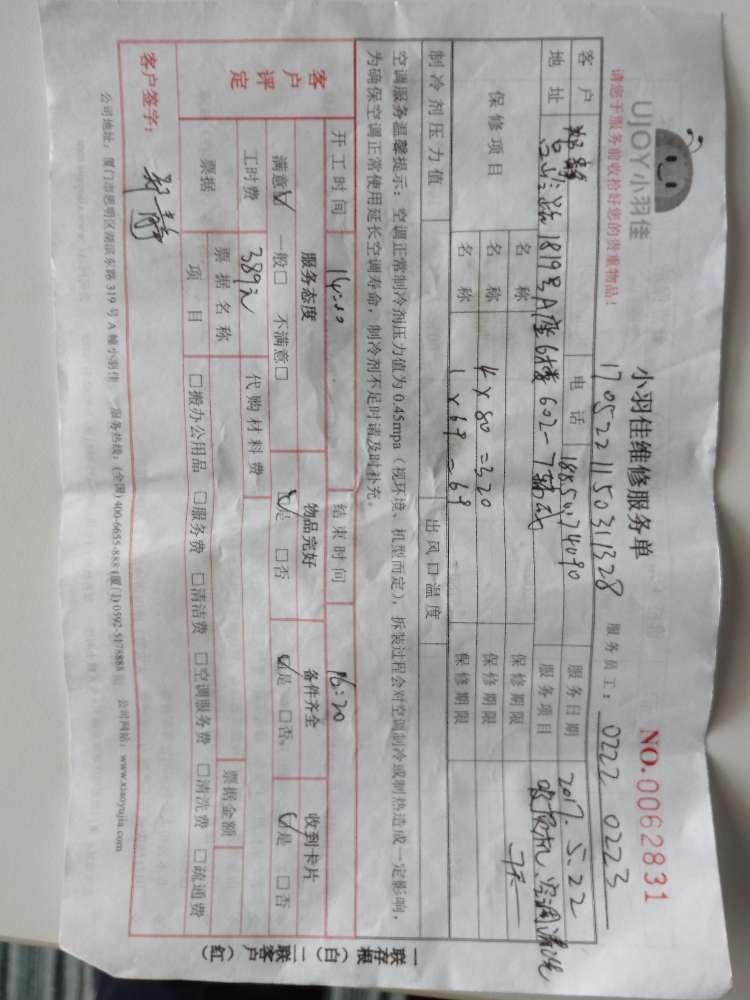 UJOY小羽佳
小羽佳维修服务单
NO.0062831
请您于服务前收拾好您的贵重物品！
1705221150311328
服务员工：0222 0223
客户
电话
服务日期 2017.5.22
地址
1819号A座6楼602-7
服务项目 空调清洗
保修项目
名称
保修期限
名称 4×80=320
保修期限
名称 1×69=69
保修期限
制冷剂压力值
出风口温度
空调服务温馨提示：空调正常制冷剂压力值为0.45mpa（视环境、机型而定），拆装过程会对空调制冷或制热造成一定影响，
为确保空调正常使用延长空调寿命，制冷剂不足时请及时补充。
开工时间
结束时间 16:20
客户评定
服务态度 物品完好 备件齐全 收到卡片
满意☑ 一般□ 不满意□ ☑是 □否 ☑是 □否 ☑是 □否
工时费 389元 代购材料费
票据 票据名称 票据金额
项目 □搬办公用品 □服务费 □清洁费 □空调服务费 □清洗费 □疏通费
客户签字：
公司地址：厦门市思明区湖滨东路319号A幢小羽佳 服务热线：(全国)400-6655-888 (厦门)0592-5178888 公司网站：www.xiaoyujia.com
一联存根（白）二联客户（红）